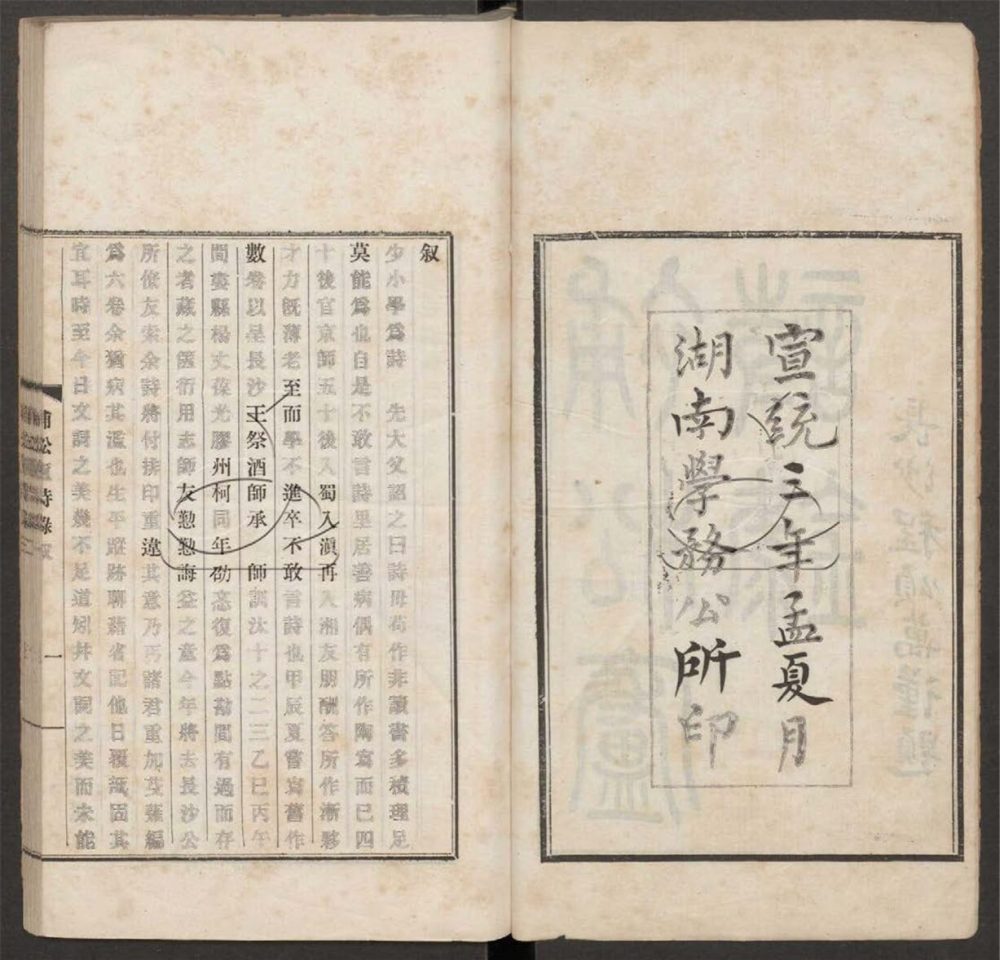 宣統三年孟夏月
湖南學務公所印
叙
少小學爲詩 先大父詔之曰詩毋苟作非讀書多積理足
莫能爲也自是不敢言詩里居善病偶有所作陶寫而已四
十後官京師五十後入蜀入滇再入湘友朋酬答所作漸夥
才力旣薄老至而學不進卒不敢言詩也甲辰夏嘗寫舊作
數卷以呈長沙王祭酒師承 師訓汰十之二三乙巳丙午
間夷縣楊丈葆光膠州柯同年劭忞復爲點勘間有過而存
之者藏之篋衍用志師友懃懃誨益之意今年將去長沙公
所僚友索余詩將付排印重違其意乃丐諸君重加芟薙編
爲六卷余猶病其濫也生平蹤跡聊藉省記他日覆瓿固其
宜耳時至今日文詞之美幾不足道矧幷文詞之美而未能
詩錄 叙 一